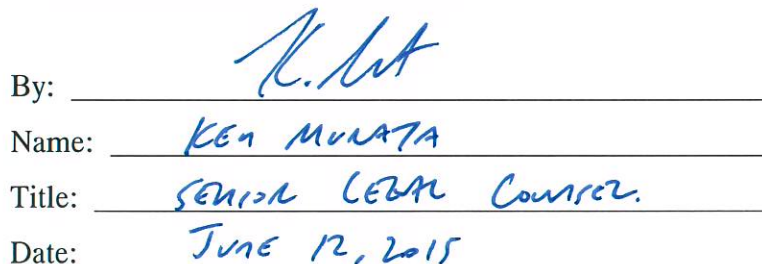 By:
Name: KEN MURATA
Title: SENIOR LEGAL COUNSEL.
Date: JUNE 12, 2015